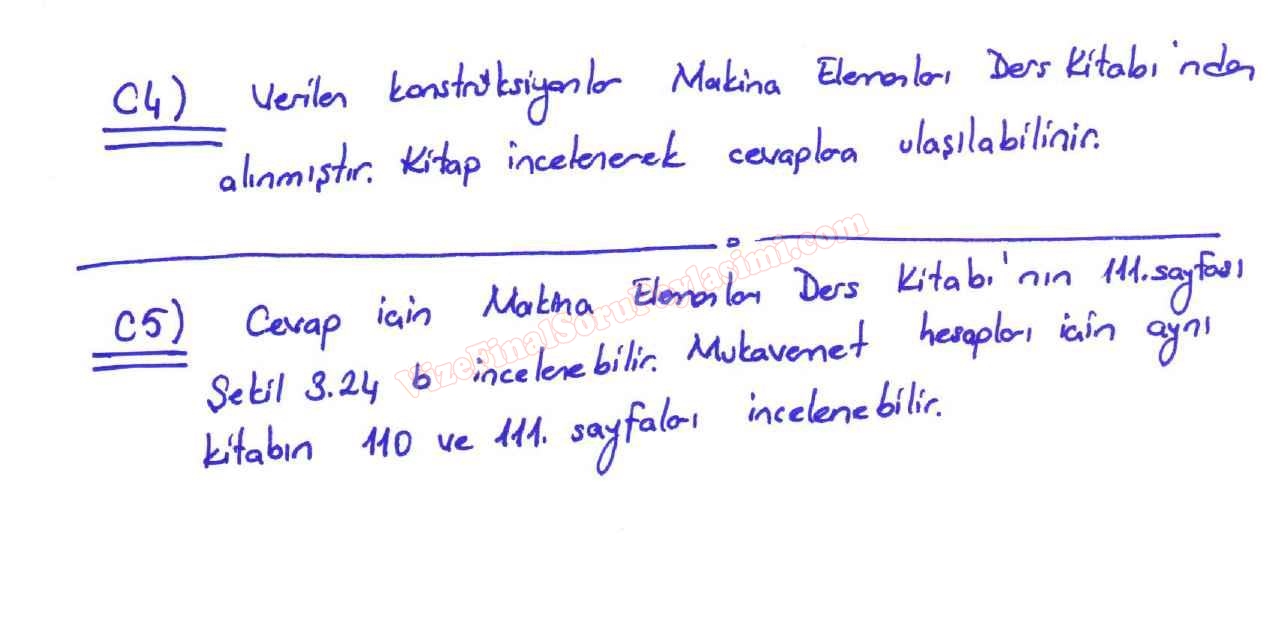 C4) Verilen konstrüksiyonlar Makina Elemanları Ders Kitabı'ndan
alınmıştır. Kitap incelenerek cevaplara ulaşılabilinir.
C5) Cevap için Makina Elemanları Ders Kitabı'nın 111. sayfası
Şekil 3.24 b incelenebilir. Mukavemet hesapları için aynı
kitabın 110 ve 111. sayfaları incelenebilir.
VizeFinalSoruPaylasimi.com